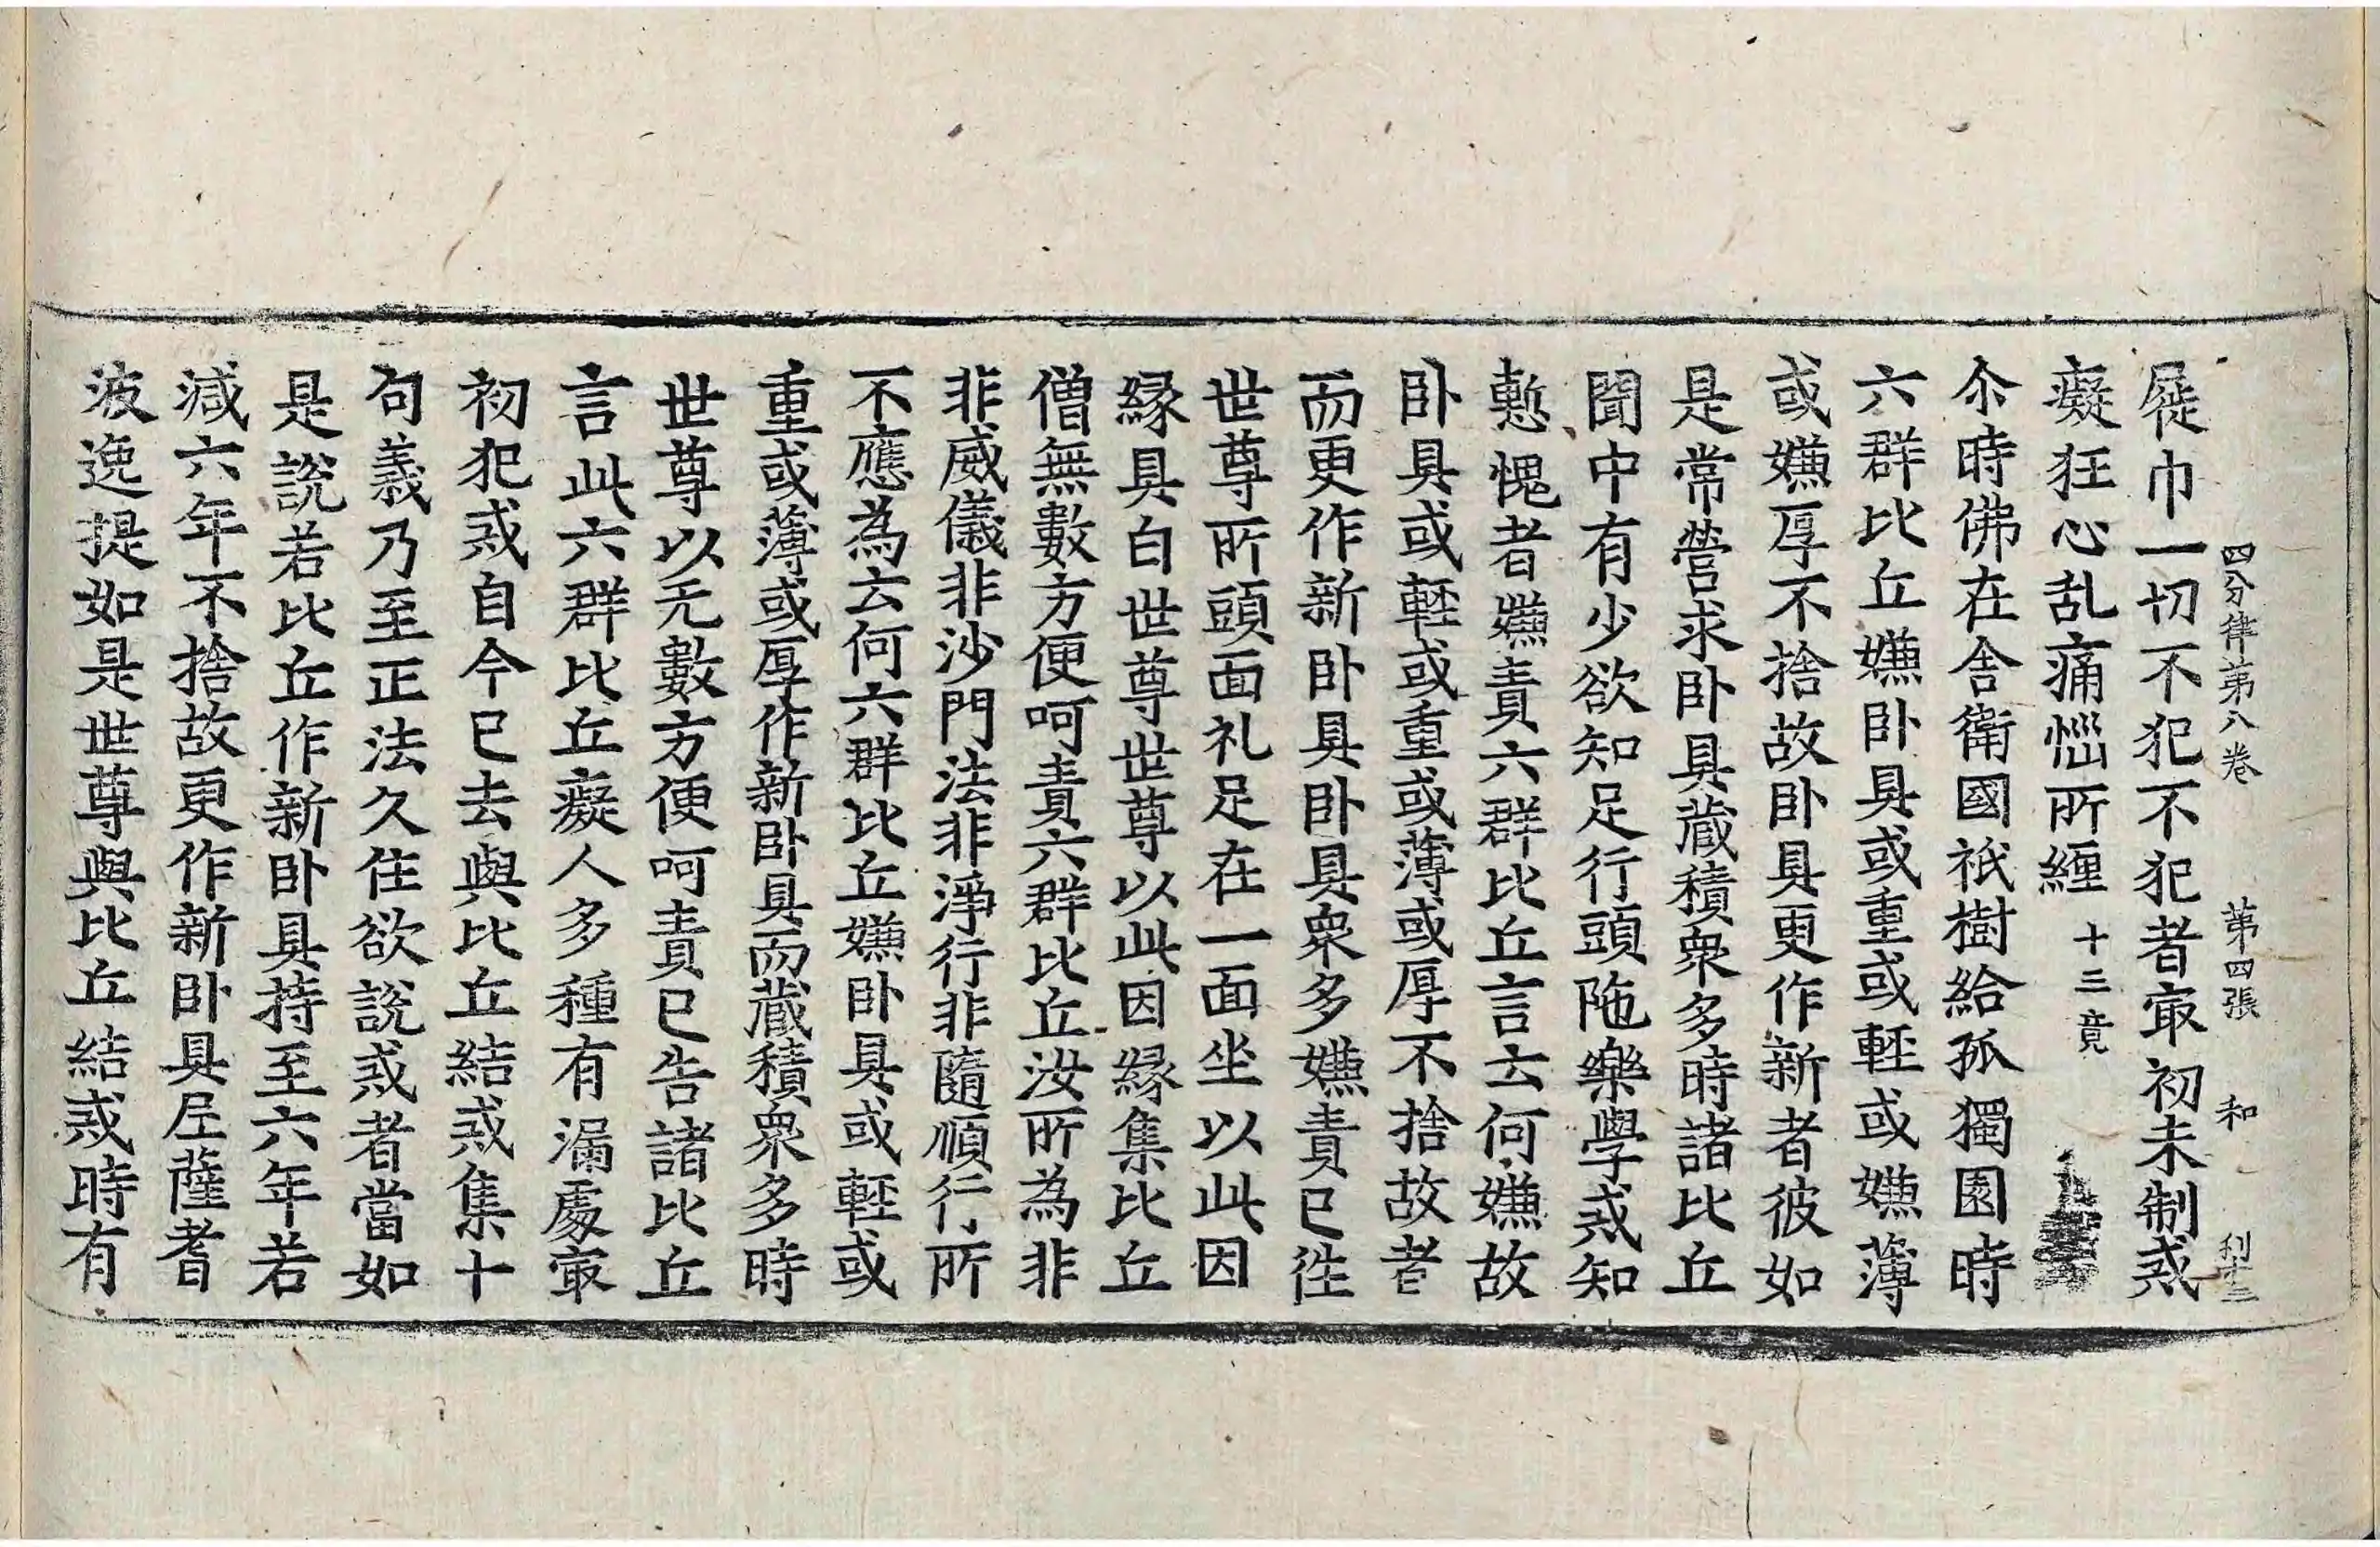 四分律第八卷 第四張 和 利十三
屣巾一切不犯不犯者㝡初未制戒
癡狂心乱痛惱所纏 十三竟
尒時佛在舍衛國祇樹給孤獨園時
六群比丘嫌卧具或重或輕或嫌薄
或嫌厚不捨故卧具更作新者彼如
是常營求卧具藏積衆多時諸比丘
聞中有少欲知足行頭陁樂學戒知
慙愧者嫌責六群比丘言云何嫌故
卧具或輕或重或薄或厚不捨故者
而更作新卧具卧具衆多嫌責已徃
世尊所頭面礼足在一面坐以此因
縁具白世尊世尊以此因縁集比丘
僧無數方便呵責六群比丘汝所為非
非威儀非沙門法非淨行非隨順行所
不應為云何六群比丘嫌卧具或輕或
重或薄或厚作新卧具而藏積衆多時
世尊以无數方便呵責已告諸比丘
言此六群比丘癡人多種有漏處㝡
初犯戒自今已去與比丘結戒集十
句義乃至正法久住欲說戒者當如
是說若比丘作新卧具持至六年若
減六年不捨故更作新卧具尼薩耆
波逸提如是世尊與比丘結戒時有